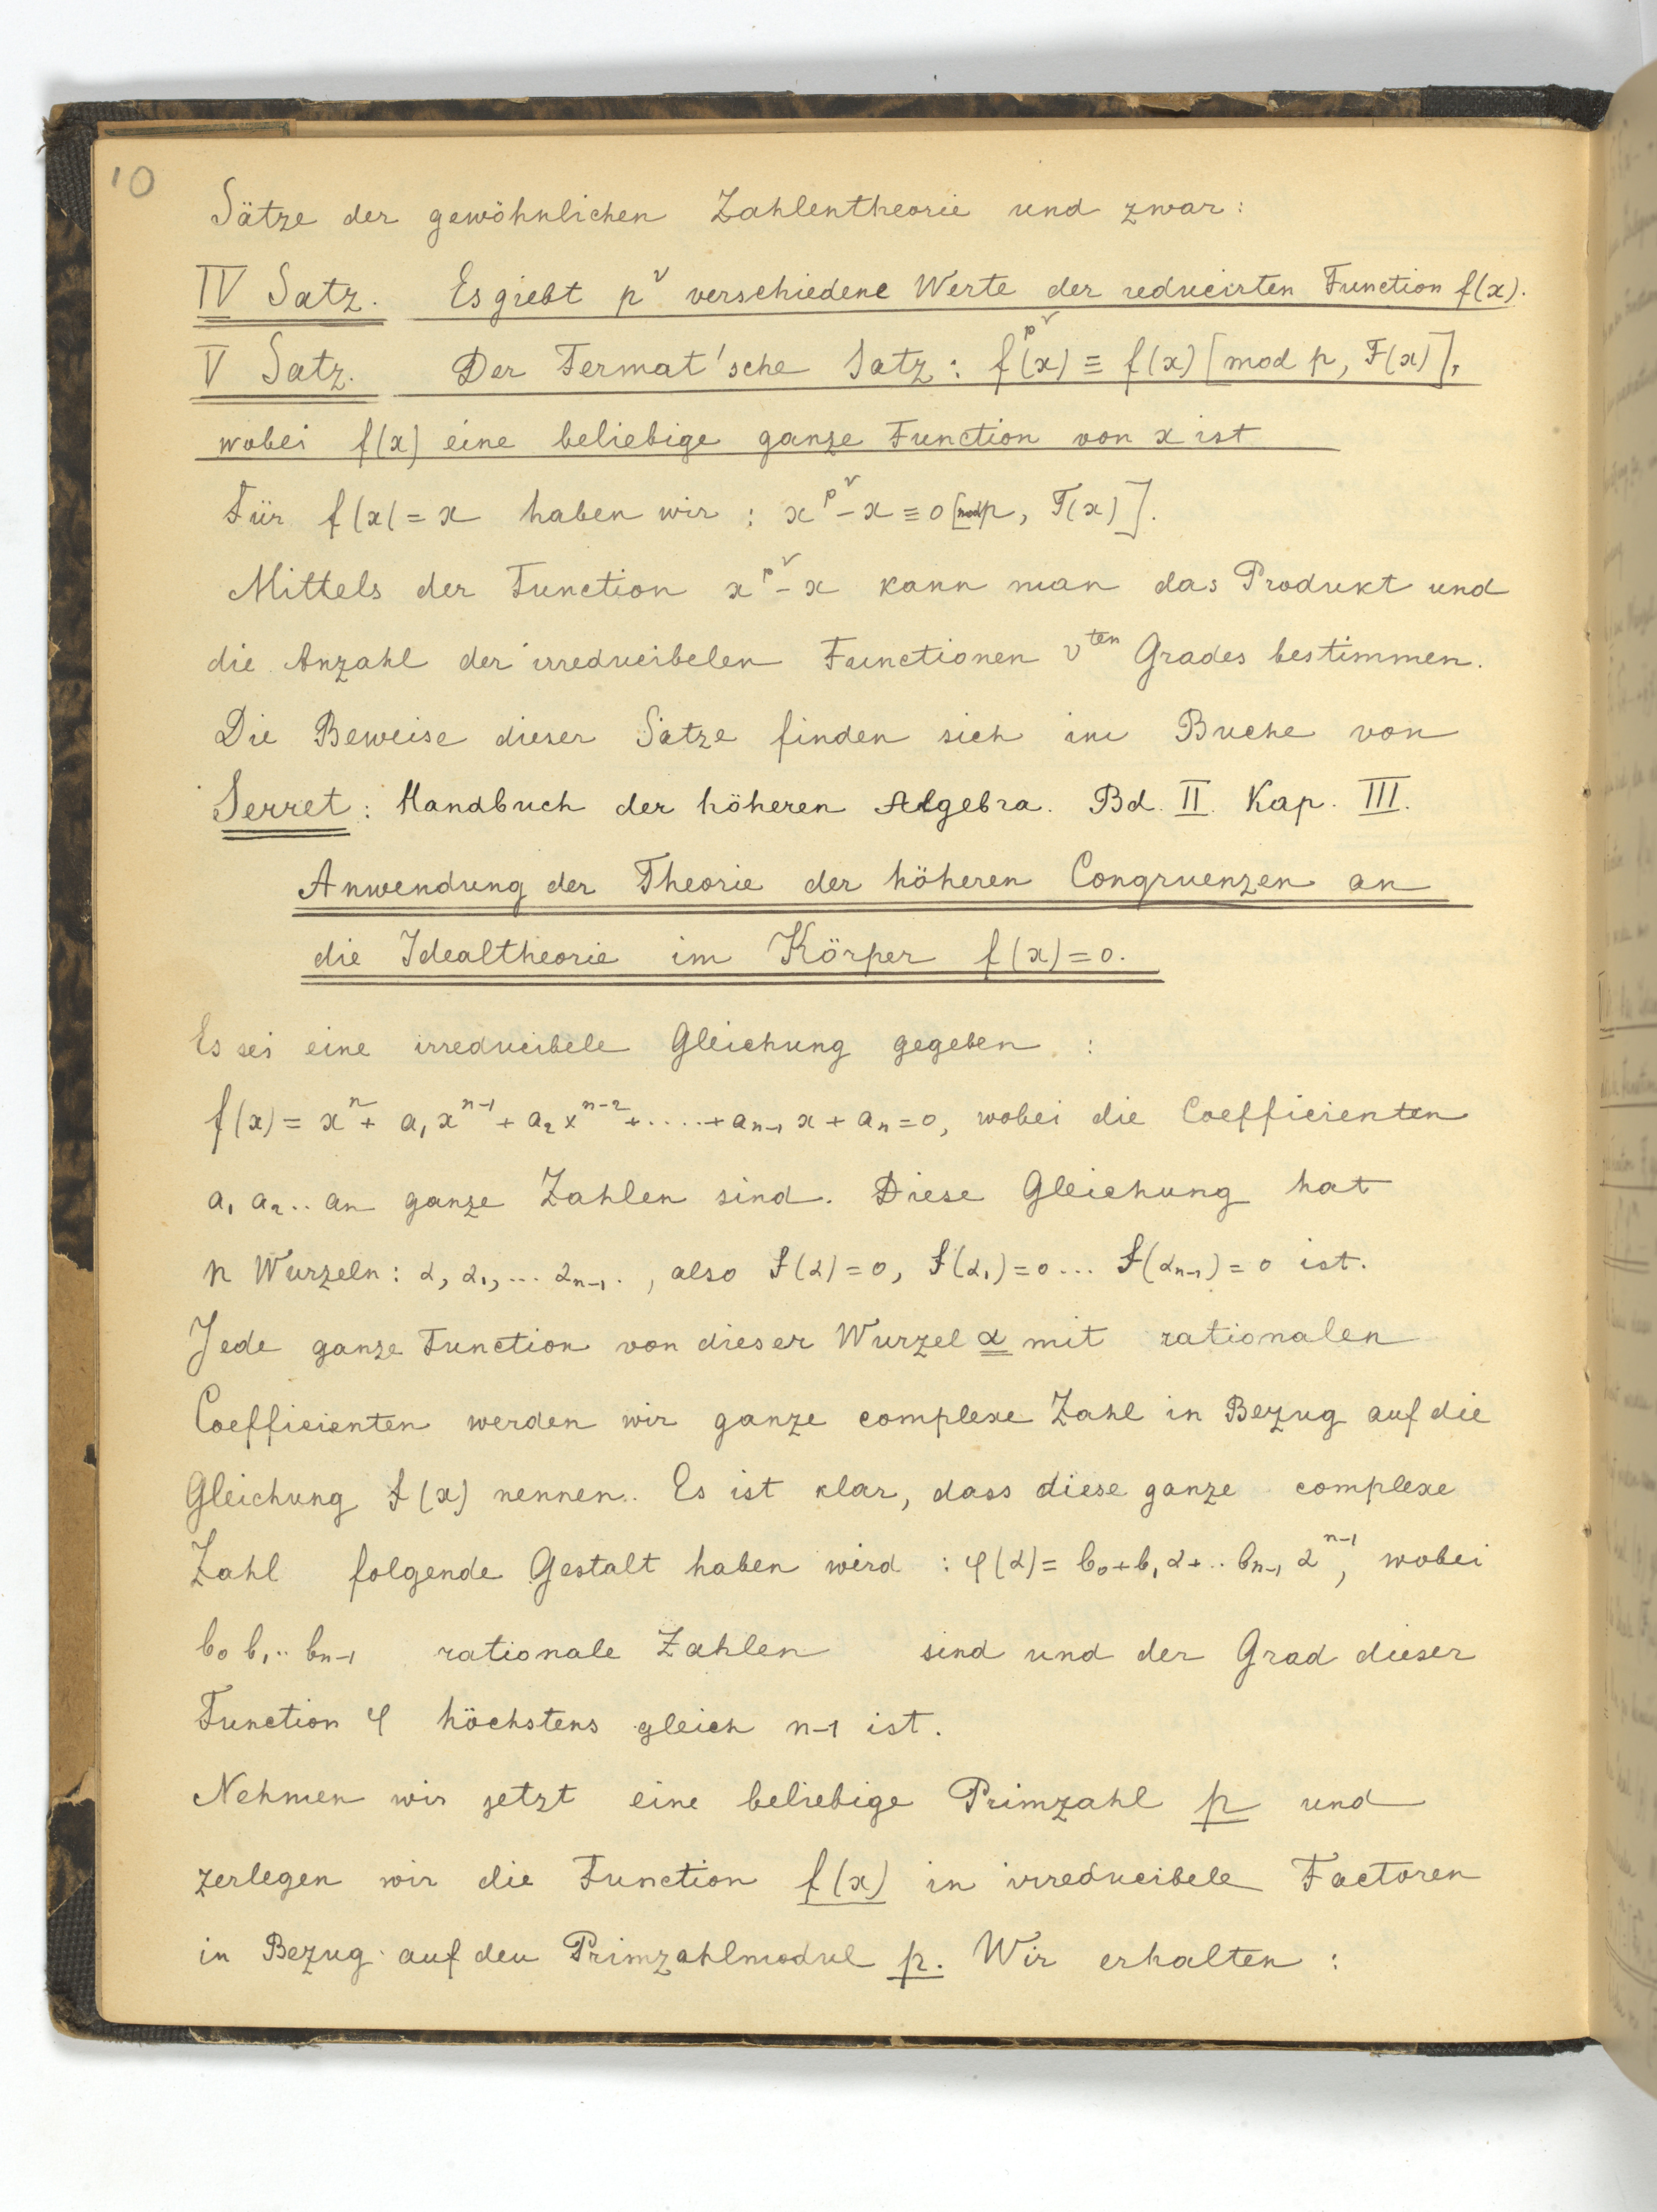 10
Sätze der gewöhnlichen Zahlentheorie und zwar:
IV Satz. Es giebt p^ν verschiedene Werte der reducirten Function f(x).
V Satz. Der Fermat'sche Satz: f^{p^ν}(x) ≡ f(x) [mod p, F(x)],
wobei f(x) eine beliebige ganze Function von x ist
Für f(x) = x haben wir: x^{p^ν} - x ≡ 0 [mod p, F(x)].
Mittels der Function x^{p^ν} - x kann man das Produkt und
die Anzahl der irreducibelen Functionen ν^ten Grades bestimmen.
Die Beweise dieser Sätze finden sich im Buche von
Serret: Handbuch der höheren Algebra. Bd. II. Kap. III.
Anwendung der Theorie der höheren Congruenzen an
die Idealtheorie im Körper f(x) = 0.
Es sei eine irreducibele Gleichung gegeben :
f(x) = x^n + a₁ x^{n-1} + a₂ x^{n-2} + ..... + a_{n-1} x + a_n = 0, wobei die Coefficienten
a₁ a₂ .. a_n ganze Zahlen sind. Diese Gleichung hat
n Wurzeln: α, α₁, ... α_{n-1}., also f(α) = 0, f(α₁) = 0 ... f(α_{n-1}) = 0 ist.
Jede ganze Function von dieser Wurzel α mit rationalen
Coefficienten werden wir ganze complexe Zahl in Bezug auf die
Gleichung f(x) nennen. Es ist klar, dass diese ganze complexe
Zahl folgende Gestalt haben wird : φ(α) = b₀ + b₁ α + .. b_{n-1} α^{n-1}, wobei
b₀ b₁ .. b_{n-1} rationale Zahlen sind und der Grad dieser
Function φ höchstens gleich n-1 ist.
Nehmen wir jetzt eine beliebige Primzahl p und
zerlegen wir die Function f(x) in irreducibele Factoren
in Bezug auf den Primzahlmodul p. Wir erhalten :